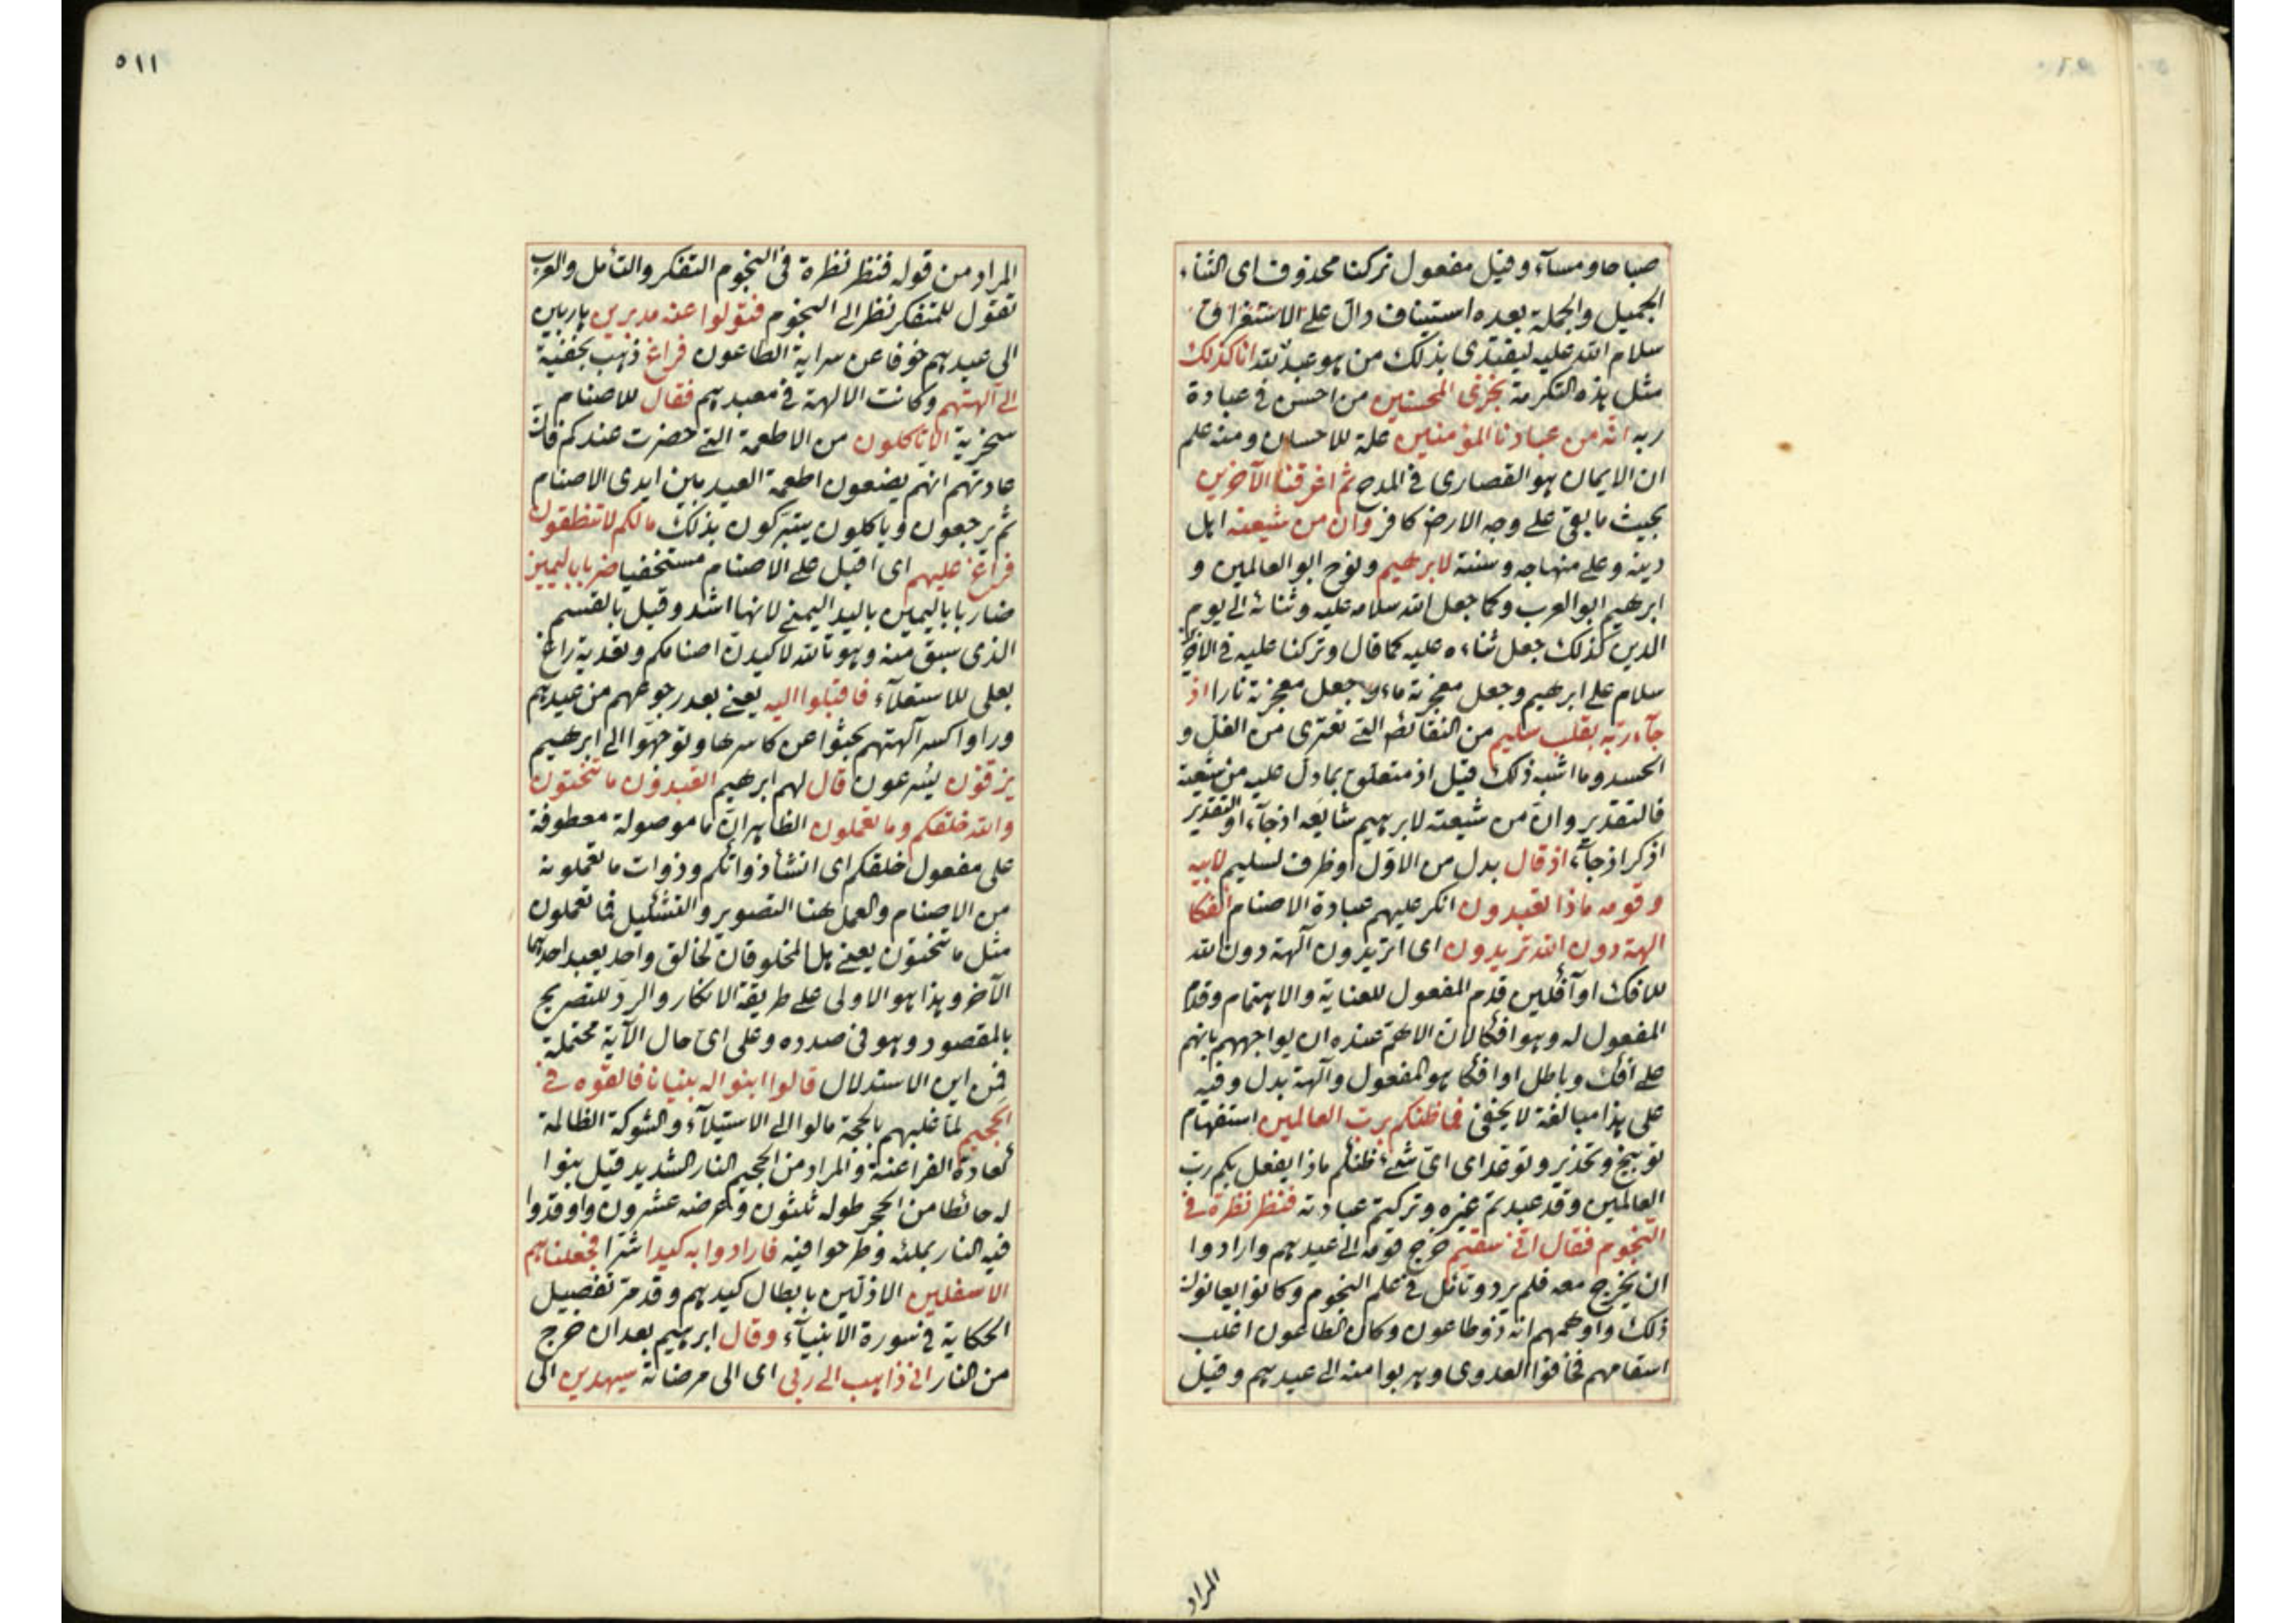 صباحا ومسآء وقيل مفعول تركنا محذوف اى الثناء
الجميل والجملة بعده استيناف دال على الاستغراق
سلام الله عليه ليقتدى بذلك من هو عبد لله انا كذلك
مثل هذه التكرمة نجزى المحسنين من احسن فى عبادة
ربه انه من عبادنا المؤمنين علة للاحسان ومنه علم
ان الايمان هو القصارى فى المدح ثم اغرقنا الآخرين
بحيث ما بقى على وجه الارض كافر وان من شيعته اهل
دينه وعلى منهاجه وسنته لابرهيم ونوح ابو العالمين و
ابرهيم ابو العرب وكما جعل الله سلامه عليه وثنائه الى يوم
الدين كذلك جعل ثناءه عليه كما قال وتركنا عليه فى الآخرين
سلام على ابرهيم وجعل معجزته ماء وجعل معجزته نارا اذ
جآء ربه بقلب سليم من النقائص التى تعترى من الغل و
الحسد وما اشبه ذلك قيل اذ متعلق بما دل عليه من شيعته
فالتقدير وان من شيعته لابرهيم شايعه اذ جآء او التقدير
اذكر اذ جآء اذ قال بدل من الاول او ظرف لسليم لابيه
وقومه ماذا تعبدون انكر عليهم عبادة الاصنام ائفكا
الهة دون الله تريدون اى اتريدون آلهة دون الله
للافك او آفكين قدم المفعول للعناية والاهتمام وقدم
المفعول له وهو افكا لان الاهم عنده ان يواجههم بانهم
على افك وباطل او افكا هو المفعول وآلهة بدل وفيه
على هذا مبالغة لا يخفى فما ظنكم برب العالمين استفهام
توبيخ وتحذير وتوعد اى اى شئ ظنكم ماذا يفعل بكم رب
العالمين وقد عبدتم غيره وتركتم عبادته فنظر نظرة فى
النجوم فقال انى سقيم خرج قومه الى عيدهم وارادوا
ان يخرج معه فلم يرد وتأمل فى علم النجوم وكانوا يعانون
ذلك واوهمهم انه ذو طاعون وكان الطاعون اغلب
اسقامهم فخافوا العدوى وهربوا منه الى عيدهم وقيل
المراد
٥١١
المراد من قوله فنظر نظرة فى النجوم التفكر والتأمل والعرب
تقول للمتفكر نظر الى النجوم فتولوا عنه مدبرين هاربين
الى عيدهم خوفا عن سراية الطاعون فراغ ذهب بخفية
الى آلهتهم وكانت الالهة فى معبدهم فقال للاصنام
سخرية الا تاكلون من الاطعمة التى حضرت عندكم فان
عادتهم انهم يضعون اطعمة العيد بين ايدى الاصنام
ثم يرجعون وياكلون يتبركون بذلك مالكم لا تنطقون
فراغ عليهم اى اقبل على الاصنام مستخفيا ضربا باليمين
ضاربا باليمين باليد اليمنى لانها اشد وقيل بالقسم
الذى سبق منه وهو تالله لاكيدن اصنامكم وتعدية راغ
بعلى للاستعلآء فاقبلوا اليه يعنى بعد رجوعهم من عيدهم
وراوا كسر آلهتهم بحثوا عن كاسرها وتوجهوا الى ابرهيم
يزفون يسرعون قال لهم ابرهيم اتعبدون ما تنحتون
والله خلقكم وما تعملون الظاهر ان ما موصولة معطوفة
على مفعول خلقكم اى انشأ ذواتكم وذوات ما تعملونه
من الاصنام والعمل هنا التصوير والتشكيل فما تعملون
مثل ما تنحتون يعنى هل المخلوقان لخالق واحد يعبد احدهما
الآخر وهذا هو الاولى على طريقة الانكار والرد للتصريح
بالمقصود وهو فى صدده وعلى اى حال الآية محتملة
فمن اين الاستدلال قالوا ابنوا له بنيانا فالقوه فى
الجحيم لما غلبهم بالحجة مالوا الى الاستيلآء والشوكة الظالمة
كعادة الفراعنة والمراد من الجحيم النار الشديد قيل بنوا
له حائطا من الحجر طوله ثلثون وعرضه عشرون واوقدوا
فيه النار بملئه وطرحوا فيه فارادوا به كيدا شرا فجعلناهم
الاسفلين الاذلين بابطال كيدهم وقد مر تفصيل
الحكاية فى سورة الانبيآء وقال ابرهيم بعد ان خرج
من النار انى ذاهب الى ربى اى الى مرضاته سيهدين الى